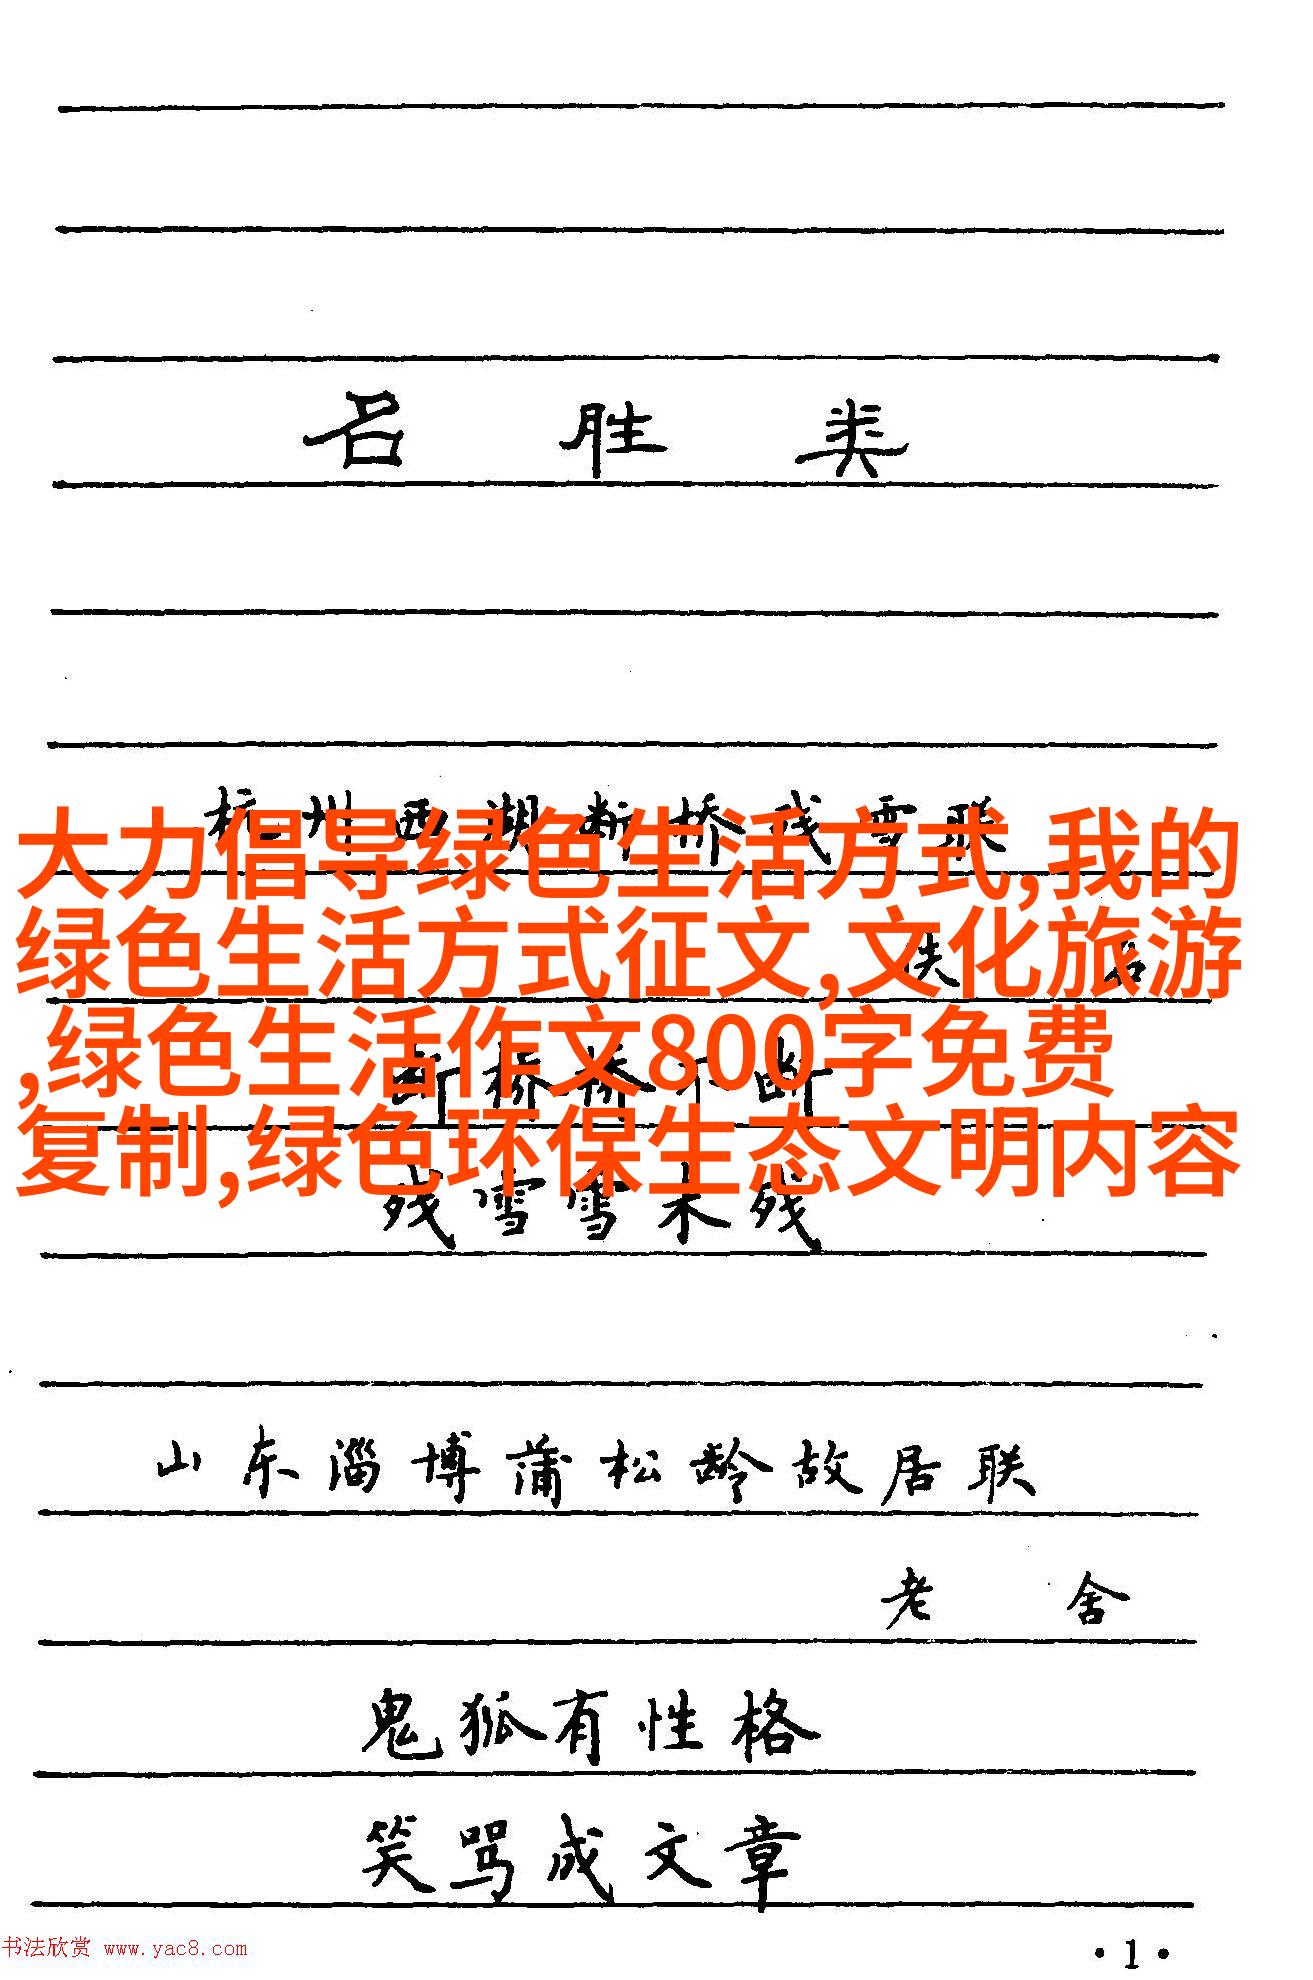 名胜类
杭州西湖断桥残雪联
大力倡导绿色生活方式,我的
绿色生活方式征文,文化旅游
,绿色生活作文800字免费
复制,绿色环保生态文明内容
残雪雪未残
山东淄博蒲松龄故居联
老舍
鬼狐有性格
笑骂成文章
书法欣赏 www.yac8.com
·1·